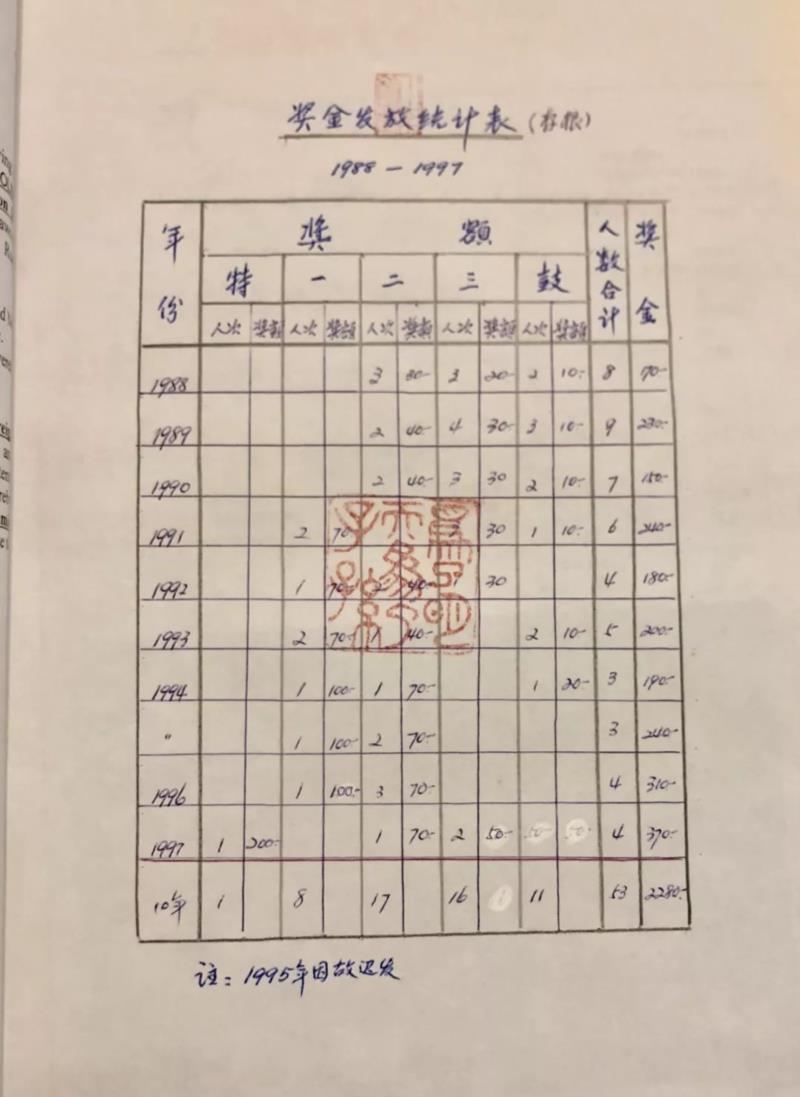 奖金发放统计表(存根)
1988 — 1997
年份 奖额 人数合计 奖金
特 一 二 三 鼓
人次 奖额 人次 奖额 人次 奖额 人次 奖额 人次 奖额
1988 3 30- 3 20- 2 10- 8 70-
1989 2 40- 4 30- 3 10- 9 230-
1990 2 40- 3 30 2 10- 7 150-
1991 2 70- 30 1 10- 6 240-
1992 1 70- 2 40- 1 30 4 180-
1993 2 70- 1 40- 2 10- 5 200-
1994 1 100- 1 70- 1 20- 3 190-
〃 1 100- 2 70- 3 240-
1996 1 100- 3 70- 4 310-
1997 1 200- 1 70- 2 50- 50- 50- 4 370-
10年 1 8 17 16 11 53 2280-
註:1995年因故迟发